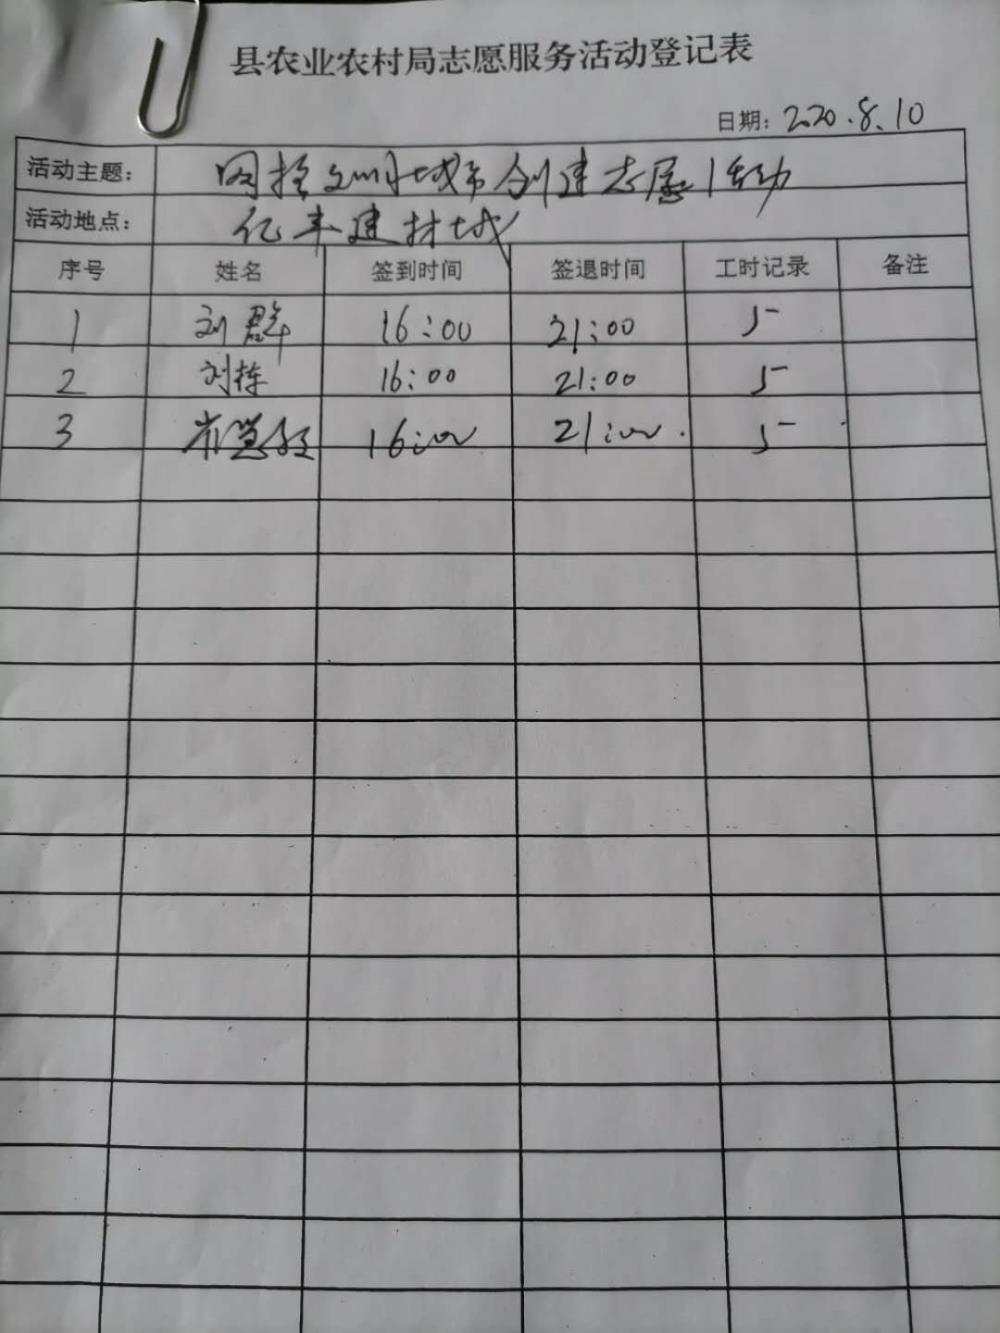 县农业农村局志愿服务活动登记表
日期: 2020.8.10
活动主题: 网格文明城市创建志愿活动
活动地点: 亿丰建材城
序号 姓名 签到时间 签退时间 工时记录 备注
1 刘群 16:00 21:00 5
2 刘栋 16:00 21:00 5
3 16:00 21:00 5